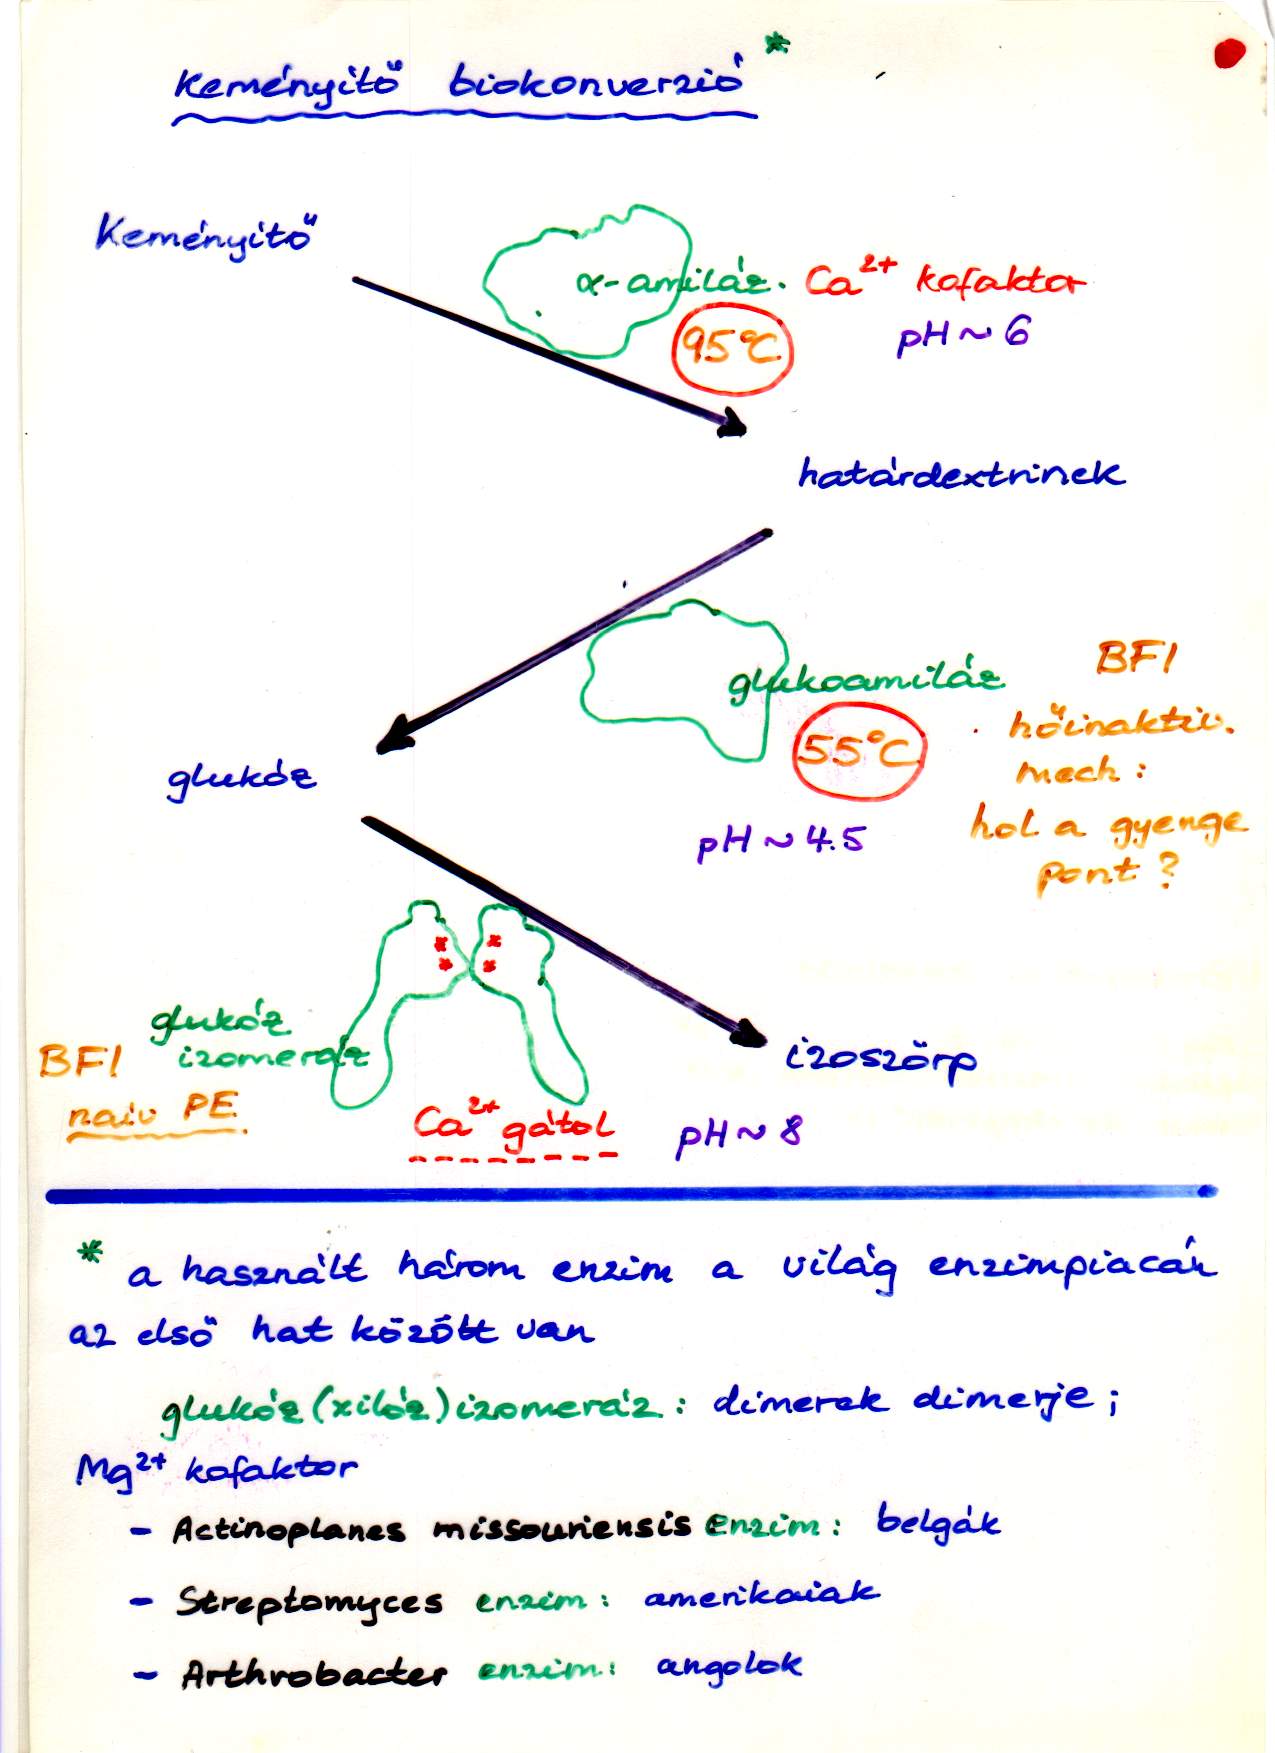 Keményítő biokonverzió *
Keményítő
α-amiláz. Ca²⁺ kofaktor
95°C
pH ~ 6
határdextrinek
glukoamiláz
55°C
BFI
hőinaktiv.
mech:
hol a gyenge
pont?
glukóz
pH ~ 4.5
glukóz
izomeráz
BFI
naiv PE.
Ca²⁺ gátol
izoszörp
pH ~ 8
* a használt három enzim a világ enzimpiacán
az első hat között van
glukóz (xilóz) izomeráz: dimerek dimerje;
Mg²⁺ kofaktor
- Actinoplanes missouriensis enzim: belgák
- Streptomyces enzim: amerikaiak
- Arthrobacter enzim: angolok